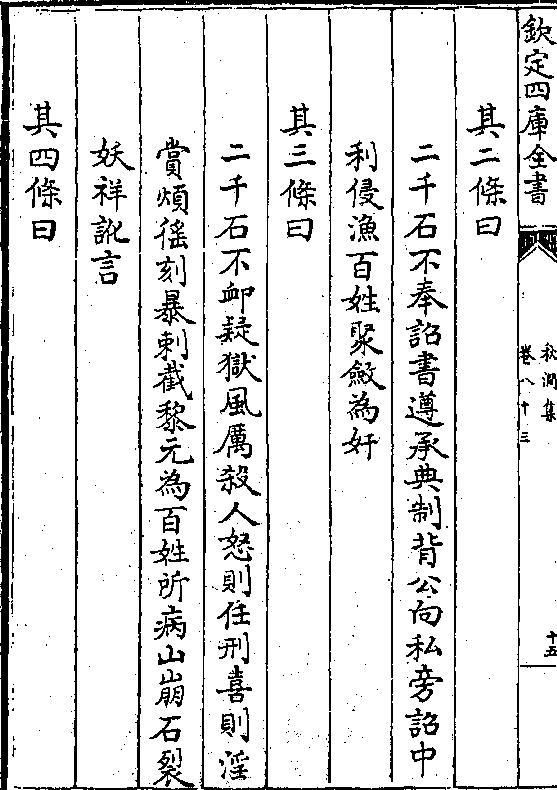 欽定四庫全書
秋澗集
卷八十三
十五
其二條曰
二千石不奉詔書遵承典制背公向私旁詔中
利侵漁百姓聚斂為奸
其三條曰
二千石不卹疑獄風厲殺人怒則任刑喜則淫
賞煩徭刻暴剌截黎元為百姓所病山崩石裂
妖祥訛言
其四條曰